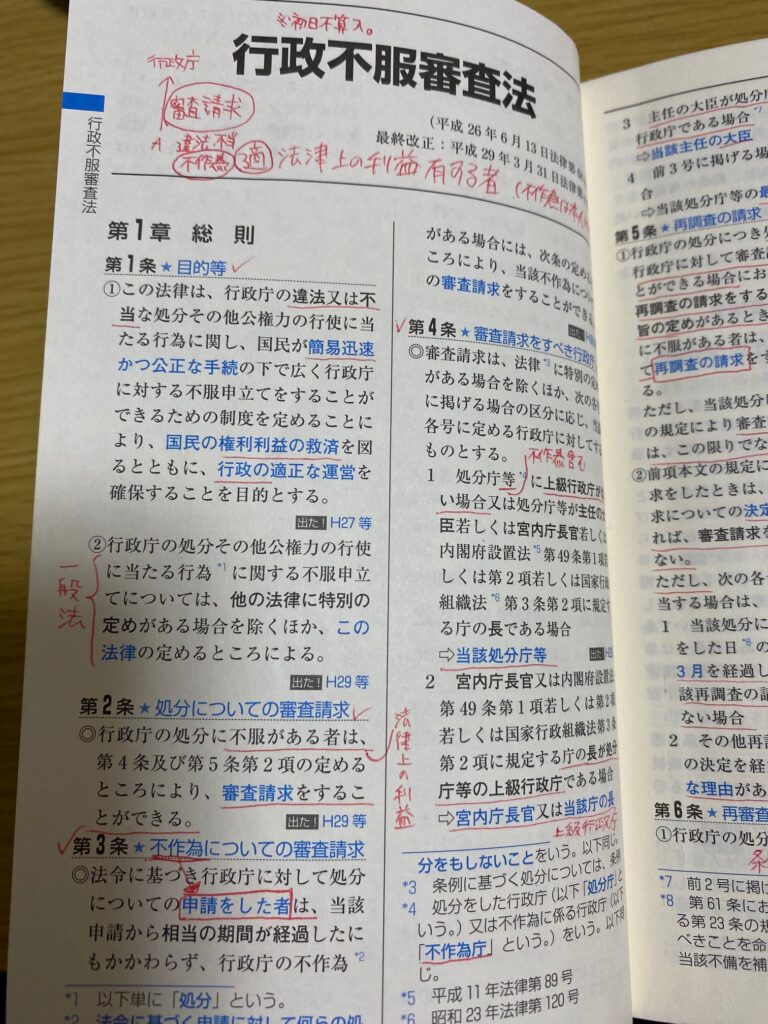 ※初日不算入。
行政不服審査法
行政庁
審査請求
A 違法・不当
不作為
適 法律上の利益有する者
(平成26年6月13日法律第
最終改正:平成29年3月31日法律第
行政不服審査法
第1章 総 則
第1条 ★目的等
①この法律は、行政庁の違法又は不
当な処分その他公権力の行使に当
たる行為に関し、国民が簡易迅速
かつ公正な手続の下で広く行政庁
に対する不服申立てをすることが
できるための制度を定めることに
より、国民の権利利益の救済を図
るとともに、行政の適正な運営を
確保することを目的とする。
出た! H27 等
②行政庁の処分その他公権力の行使
に当たる行為*1に関する不服申立
てについては、他の法律に特別の
定めがある場合を除くほか、この
法律の定めるところによる。
一般法
出た! H29 等
第2条 ★処分についての審査請求
◎行政庁の処分に不服がある者は、
第4条及び第5条第2項の定める
ところにより、審査請求をするこ
とができる。
出た! H29 等
法律上の利益
第3条 ★不作為についての審査請求
◎法令に基づき行政庁に対して処分
についての申請をした者は、当該
申請から相当の期間が経過したに
もかかわらず、行政庁の不作為*2
*1 以下単に「処分」という。
*2 法令に基づく申請に対して何らの処
がある場合には、次条の定め
ころにより、当該不作為につい
の審査請求をすることができ
出た!
第4条 ★審査請求をすべき行政庁
◎審査請求は、法律*3に特別の定
がある場合を除くほか、次の各
に掲げる場合の区分に応じ、当
各号に定める行政庁に対してす
ものとする。
不作為含む
1 処分庁等*4に上級行政庁が
い場合又は処分庁等が主任の大
臣若しくは宮内庁長官若しく
内閣府設置法*5第49条第1項
しくは第2項若しくは国家行
組織法*6第3条第2項に規定
る庁の長である場合
⇨当該処分庁等
出た!
2 宮内庁長官又は内閣府設置法
第49条第1項若しくは第2項
若しくは国家行政組織法第3条
第2項に規定する庁の長が処分
庁等の上級行政庁である場合
⇨宮内庁長官又は当該庁の長
上級行政庁
分をもしないことをいう。以下同じ。
*3 条例に基づく処分については、条例
*4 処分をした行政庁(以下「処分庁」と
いう。)又は不作為に係る行政庁(以下
「不作為庁」という。)をいう。以下同
じ。
*5 平成11年法律第89号
*6 昭和23年法律第120号
3 主任の大臣が処分
行政庁である場合*7
⇨当該主任の大臣
4 前3号に掲げる場
合
⇨当該処分庁等の最
第5条 ★再調査の請求
①行政庁の処分につき処
行政庁に対して審査請
とができる場合にお
再調査の請求をする
旨の定めがあるとき
に不服がある者は、
て再調査の請求をす
る。
ただし、当該処分
の規定により審査
は、この限りでな
②前項本文の規定に
求をしたときは、
求についての決定
れば、審査請求を
ない。
ただし、次の各
当する場合は、
1 当該処分に
をした日*8の
3月を経過し
該再調査の請
ない場合
2 その他再調
の決定を経
な理由があ
第6条 ★再審査
①行政庁の処分
*7 前2号に掲げ
*8 第61条にお
る第23条の規
べきことを命
当該不備を補